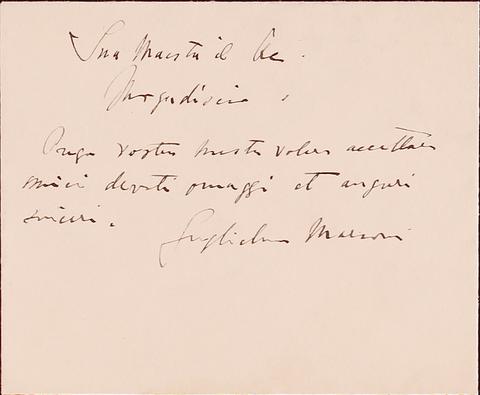 Sua Maestà il Re.
Mogadiscio.
Prego Vostra Maesta voler accettare
miei devoti omaggi et auguri
sinceri.
Guglielmo Marconi